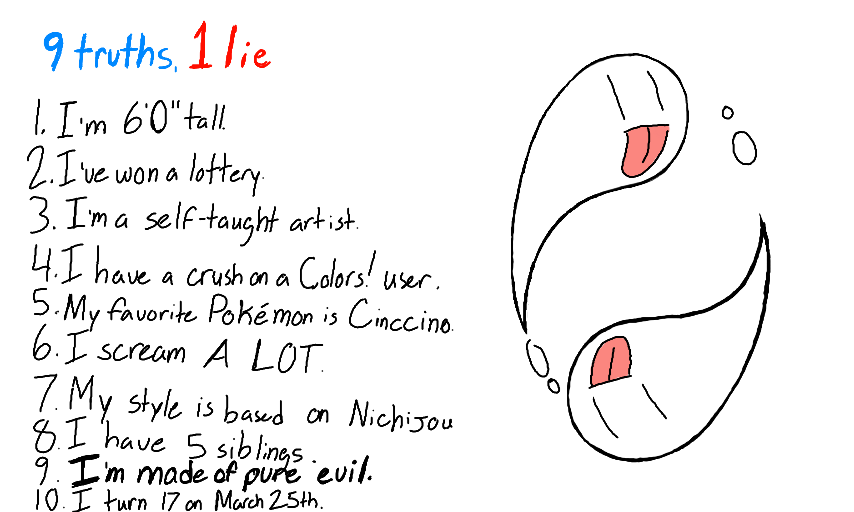 9 truths, 1 lie
1. I'm 6'0" tall.
2. I've won a lottery.
3. I'm a self-taught artist.
4. I have a crush on a Colors! user.
5. My favorite Pokémon is Cinccino.
6. I scream A LOT.
7. My style is based on Nichijou
8. I have 5 siblings.
9. I'm made of pure evil.
10. I turn 17 on March 25th.